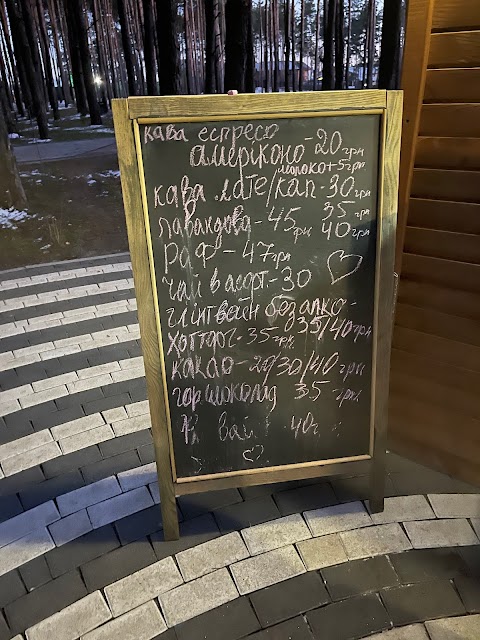 кава еспресо
амеріконо - 20 грн
молоко + 5 грн
кава лате/кап - 30 грн
35
лавандова - 45 грн 40 грн
раф - 47 грн
чай в асорт - 30
глінтвейн безалко -
35/40 грн
хоттог - 35 грн
какао - 20/30/40 грн
гор шоколад 35 - грн
40